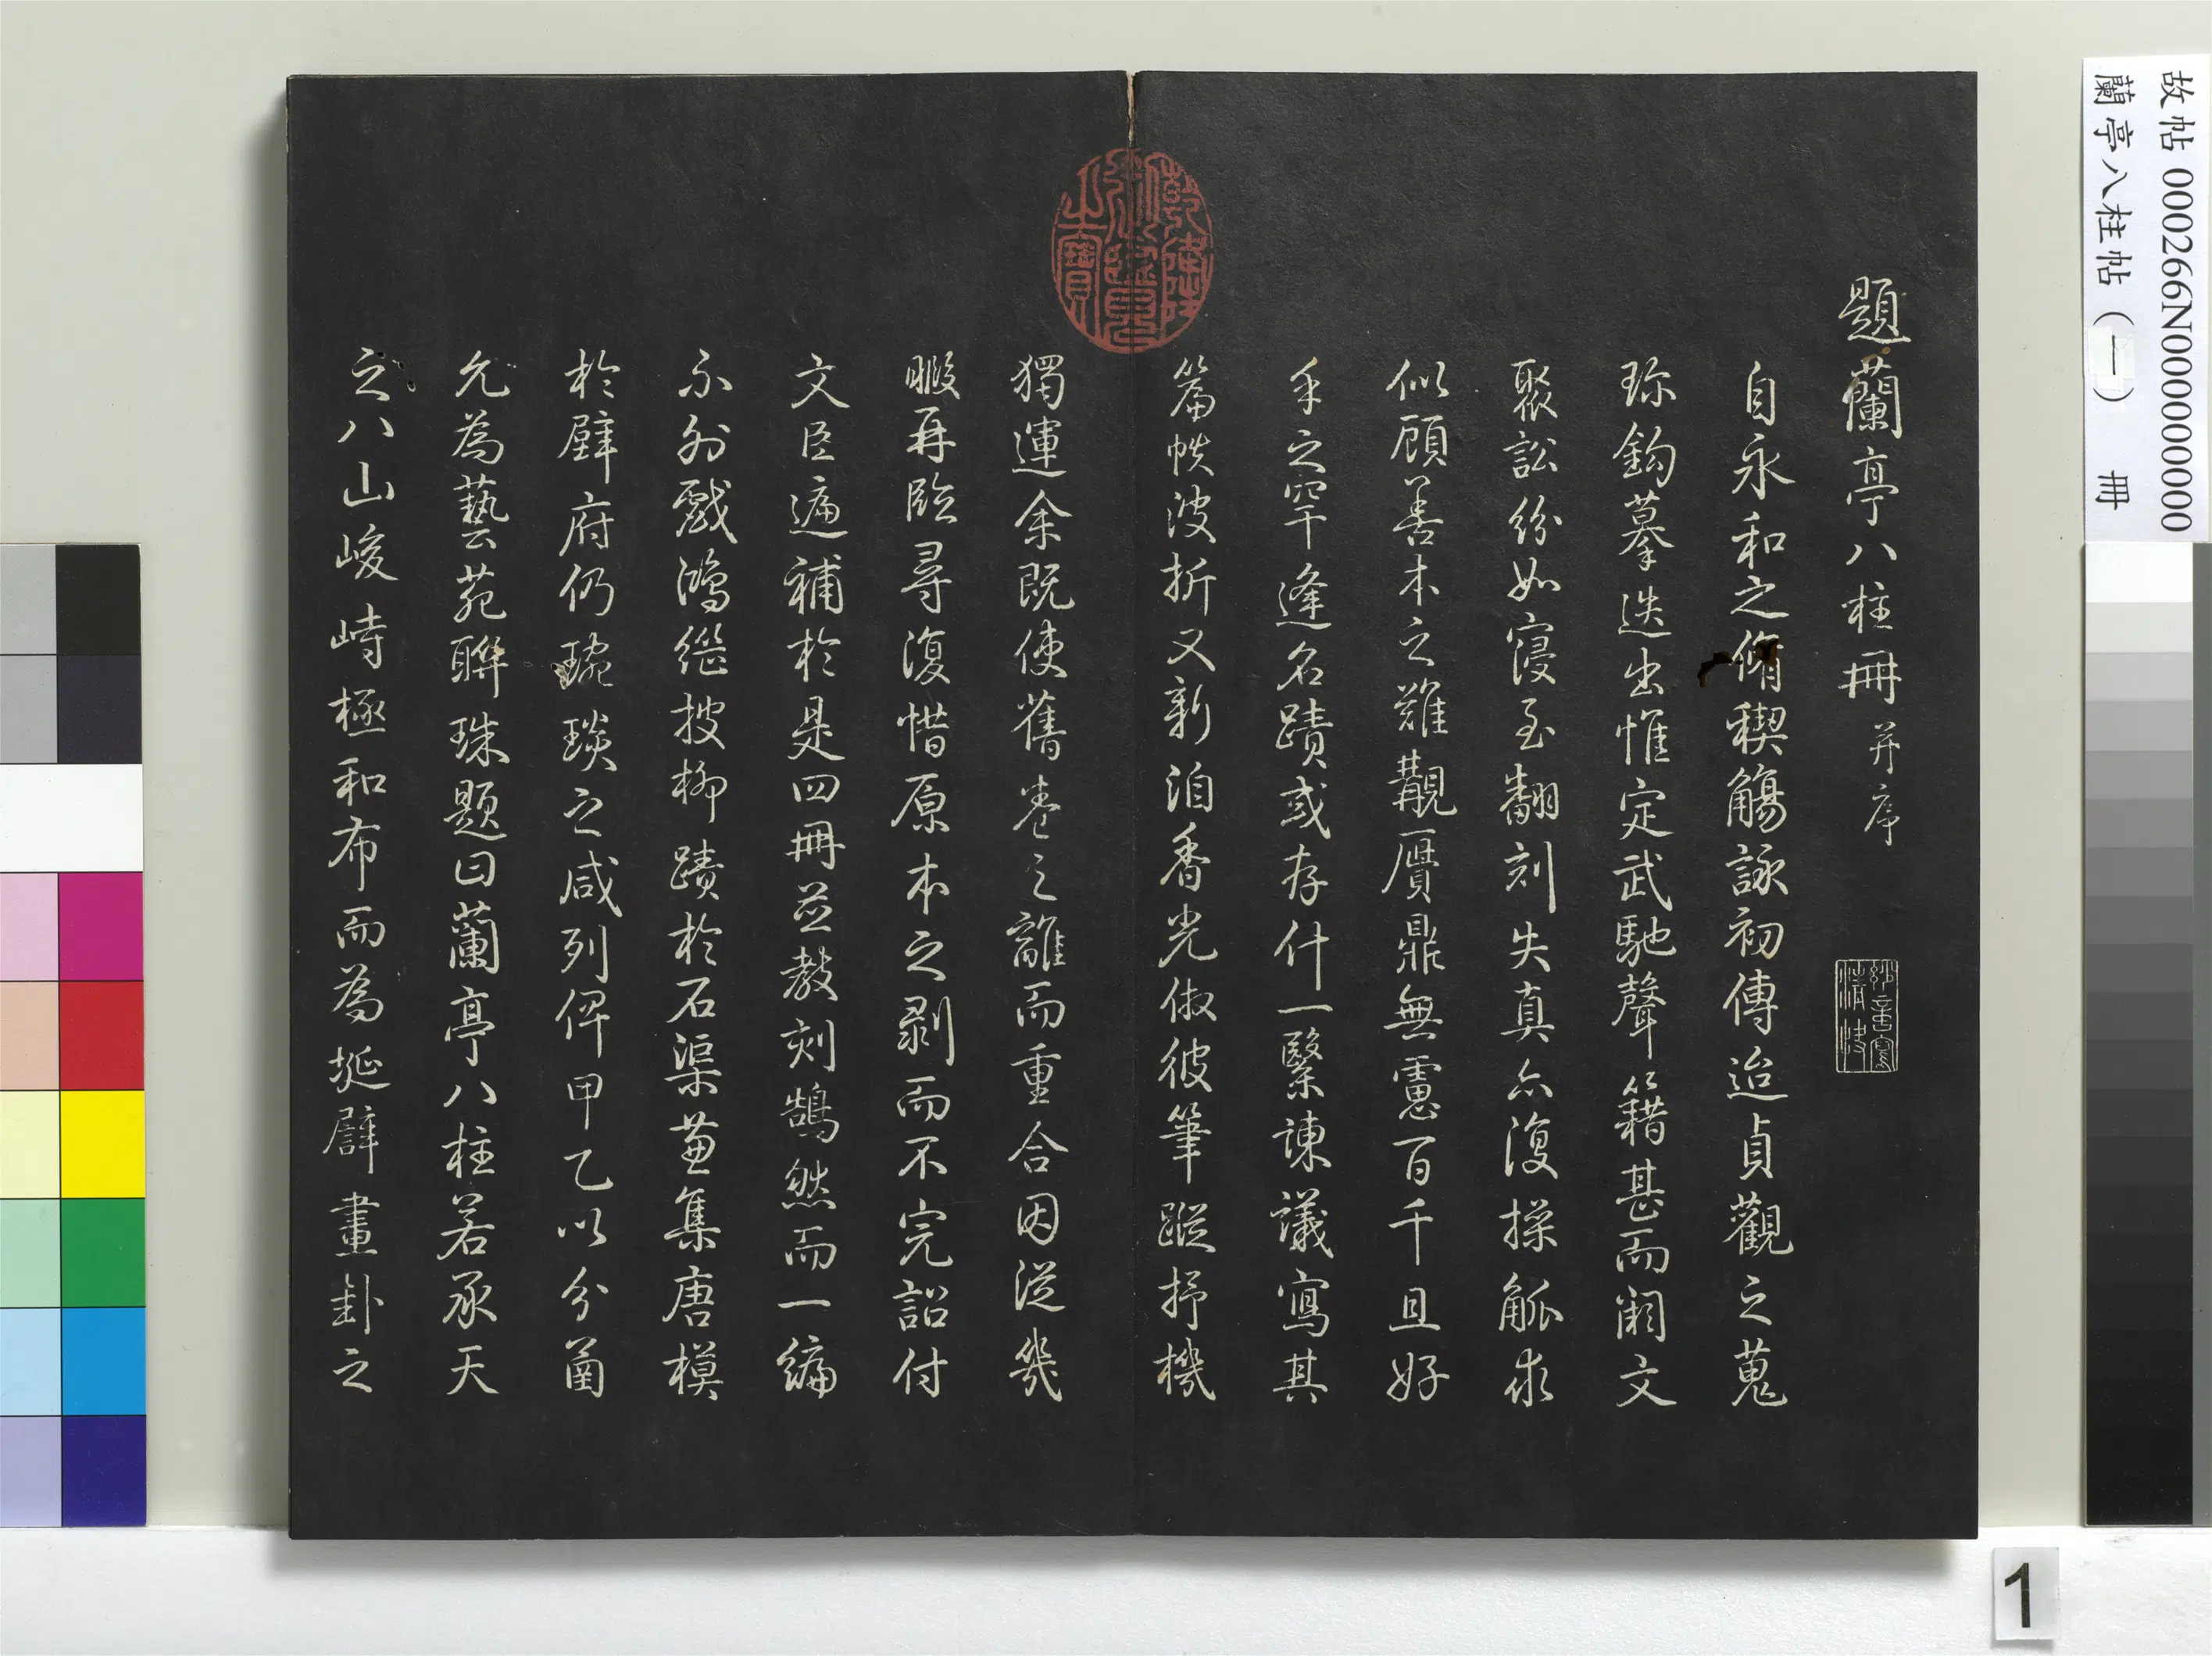 題蘭亭八柱冊并序
自永和之脩禊觴詠初傳迨貞觀之蒐
珎鉤摹迭出惟定武馳聲籍甚而闢文
聚訟紛如寖至翻刻失真亦復操觚求
似顧善本之難覯贗鼎無慮百千且好
手之罕逢名蹟或存什一繄諫議寫其
篇帙波折又新洎香光倣彼筆蹤抒機
獨運余既使舊卷之離而重合因從幾
暇再臨尋復惜原本之剥而不完詔付
文臣遍補於是四冊並教刻鵠然而一編
不外戲鴻繼披柳蹟於石渠兼集唐模
於壁府仍琬琰之咸列俾甲乙以分菑
允為藝苑聯珠題曰蘭亭八柱若承天
之八山峻峙極和布而為埏壁畫卦之
乾隆御覽之寶
故帖 000266N000000000
蘭亭八柱帖(一) 冊
1